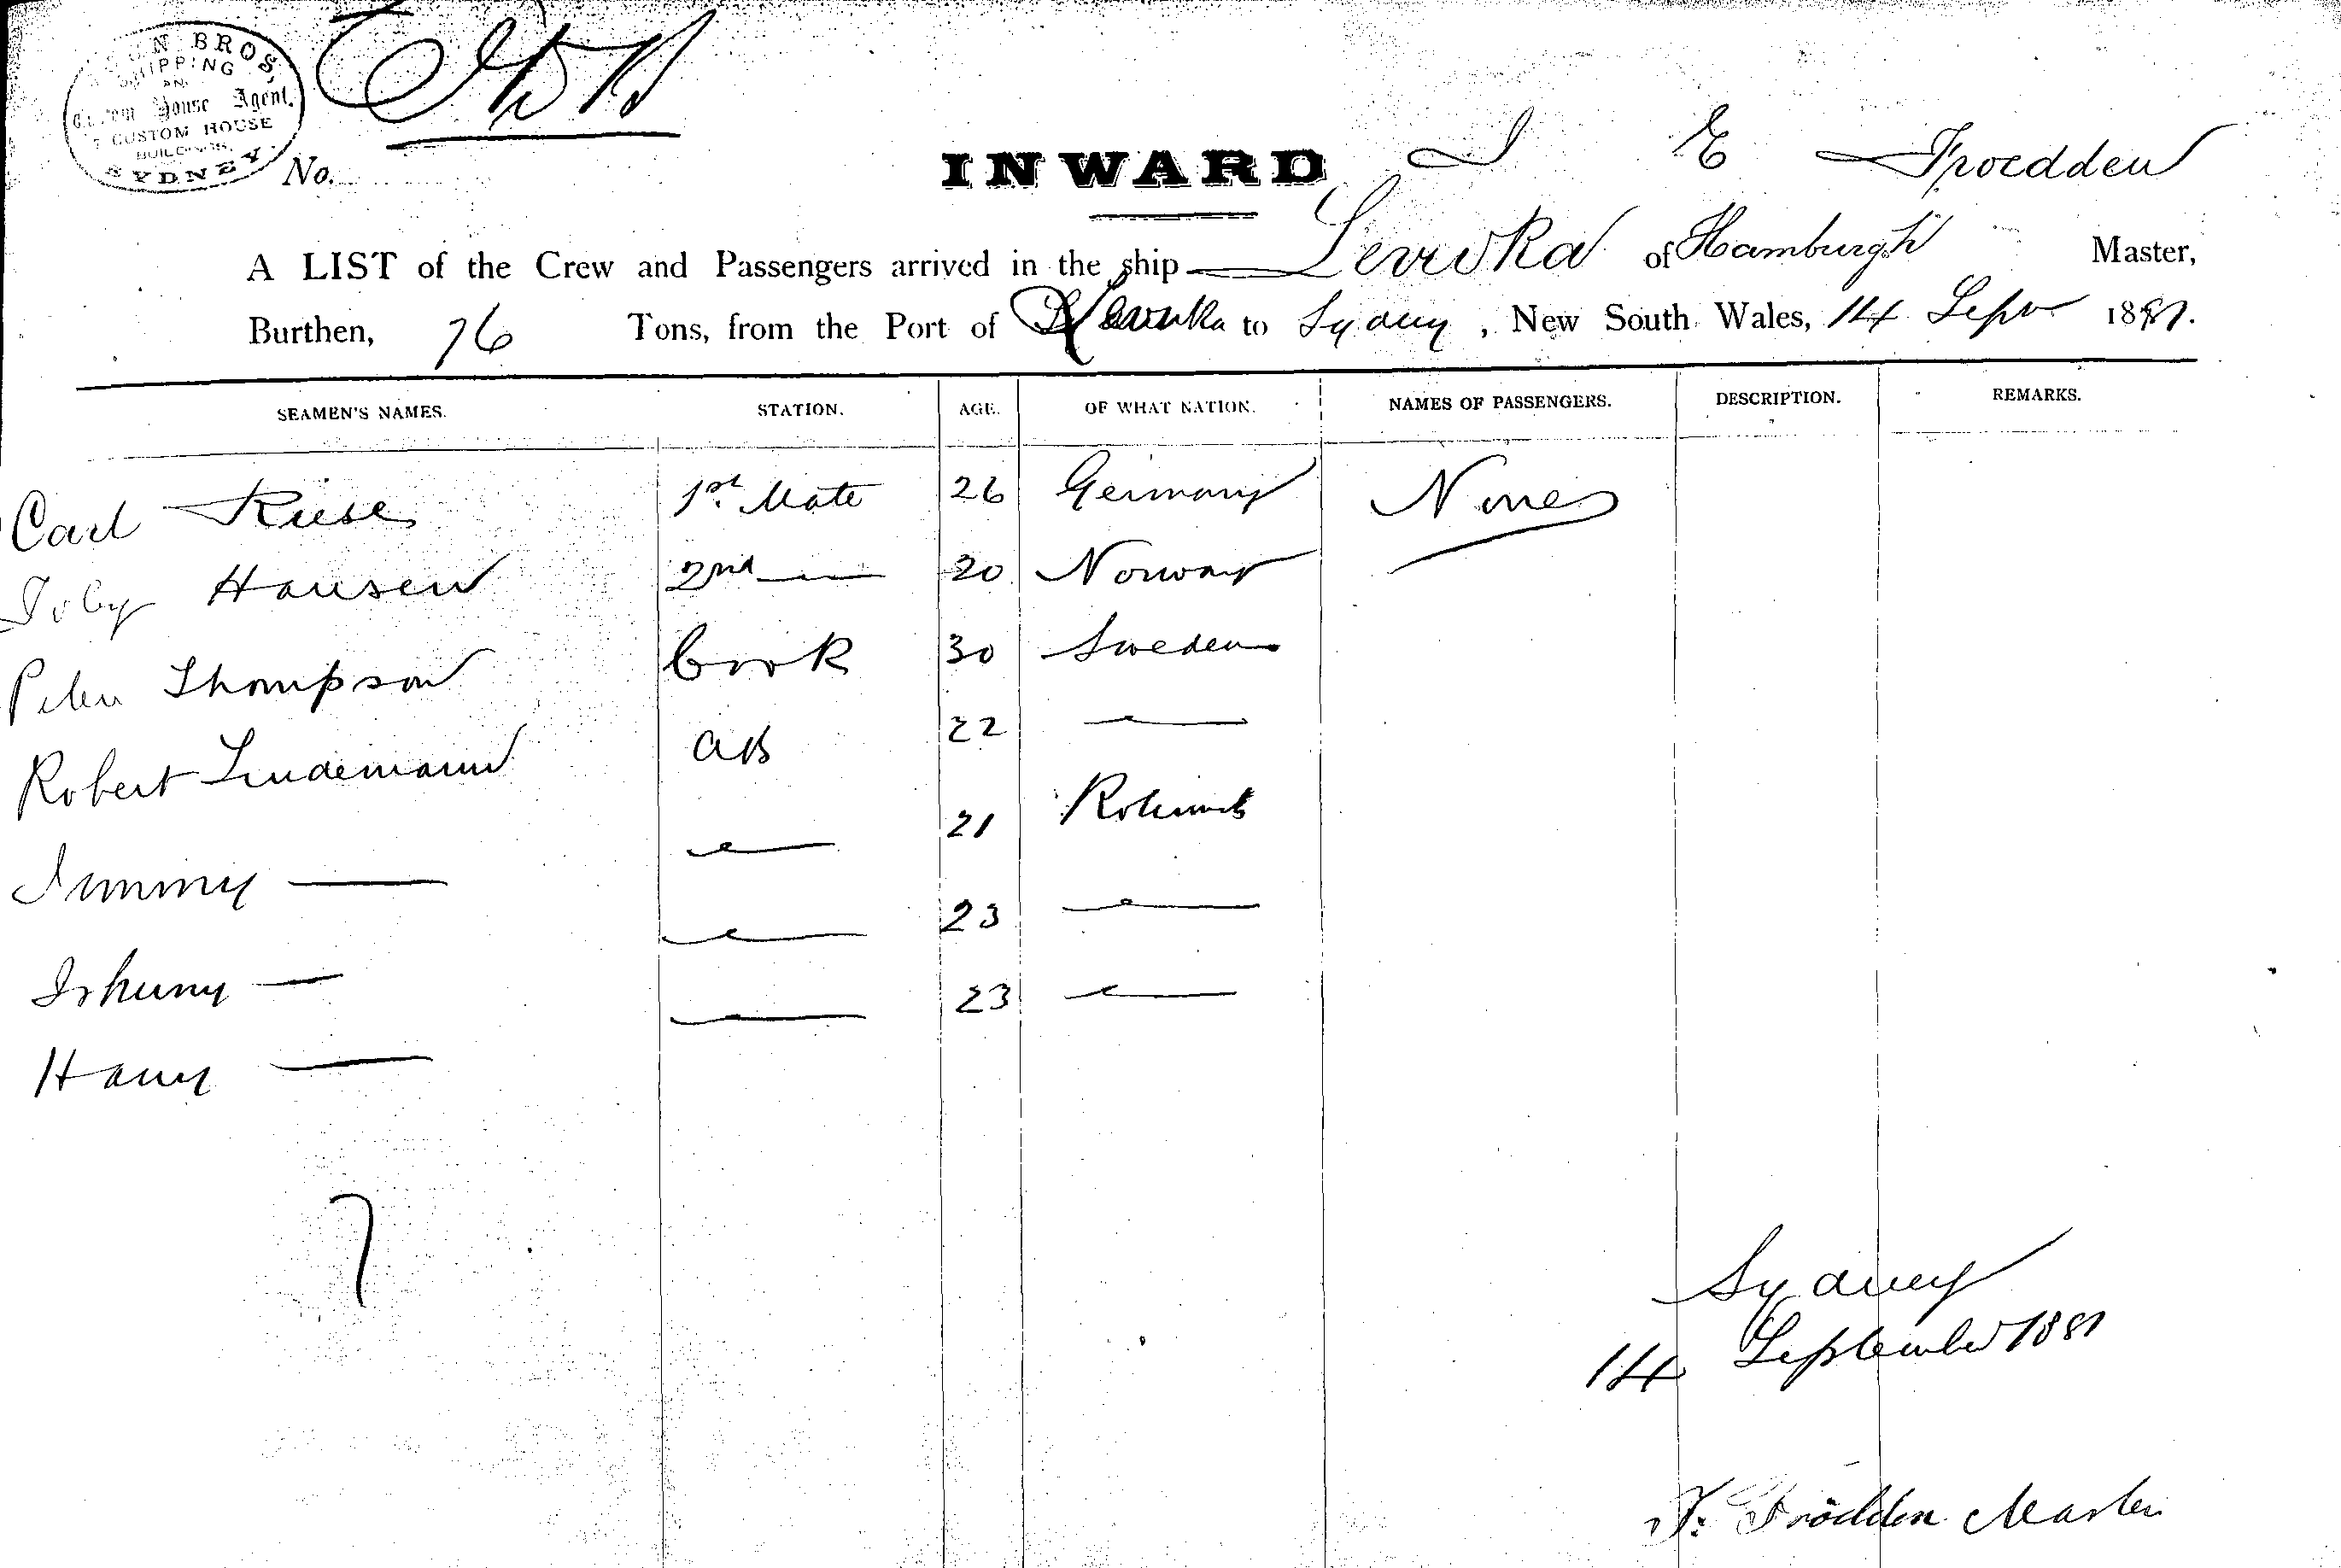 BROS,
SHIPPING
House Agent.
CUSTOM HOUSE
BUILDINGS,
SYDNEY.
No.
INWARD
J E Froedden
A LIST of the Crew and Passengers arrived in the ship Levuka of Hamburgh Master,
Burthen, 76 Tons, from the Port of Levuka to Sydney, New South Wales, 14 Sepr 1881.
SEAMEN'S NAMES. STATION. AGE. OF WHAT NATION. NAMES OF PASSENGERS. DESCRIPTION. REMARKS.
Carl Riese 1st Mate 26 Germany None
Toby Hansen 2nd — 20 Norway
Peter Thompson Cook 30 Sweden
Robert Lindemann AB 22 —
Jimmy — — 21 Rotumah
— — 23 —
Harry — — 23 —
7
Sydney
14 September 1881
Frödden Master